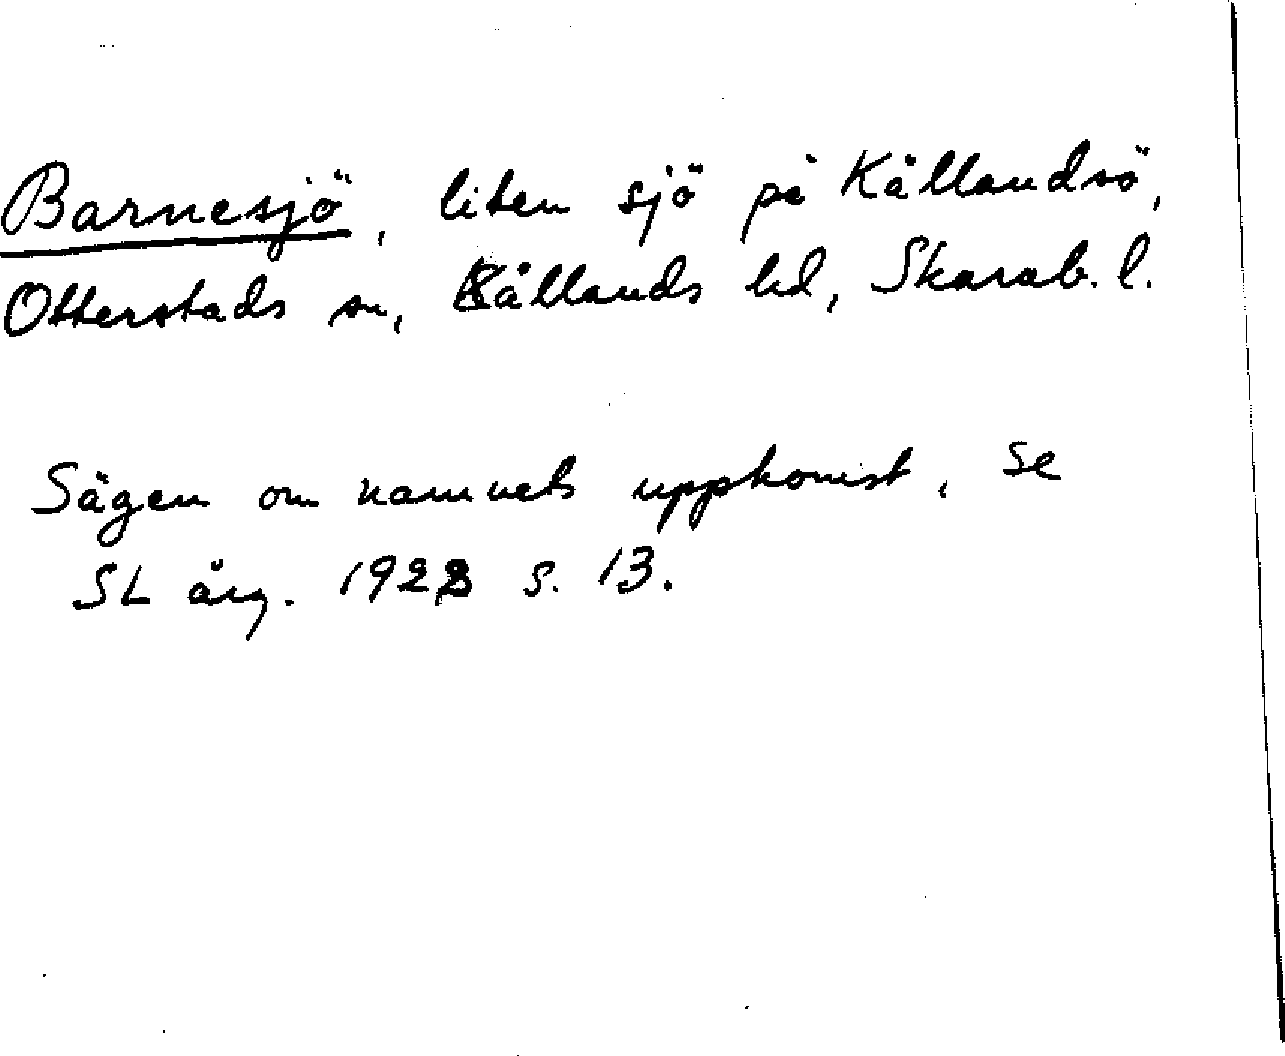 Barnesjö, liten sjö på Kållandsö,
Otterstads sn, Kållands hd, Skarab. l.
Sägen om namnets uppkomst, se
SL årg. 1922 s. 13.